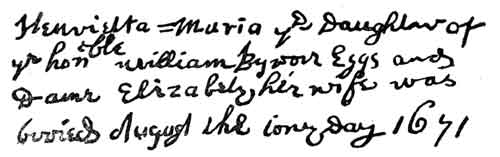 Henrietta = Maria yᵉ Daughter of
yᵉ honᵇˡᵉ William Eggs and
Dame Elizabeth his wife was
buried August the day 1671